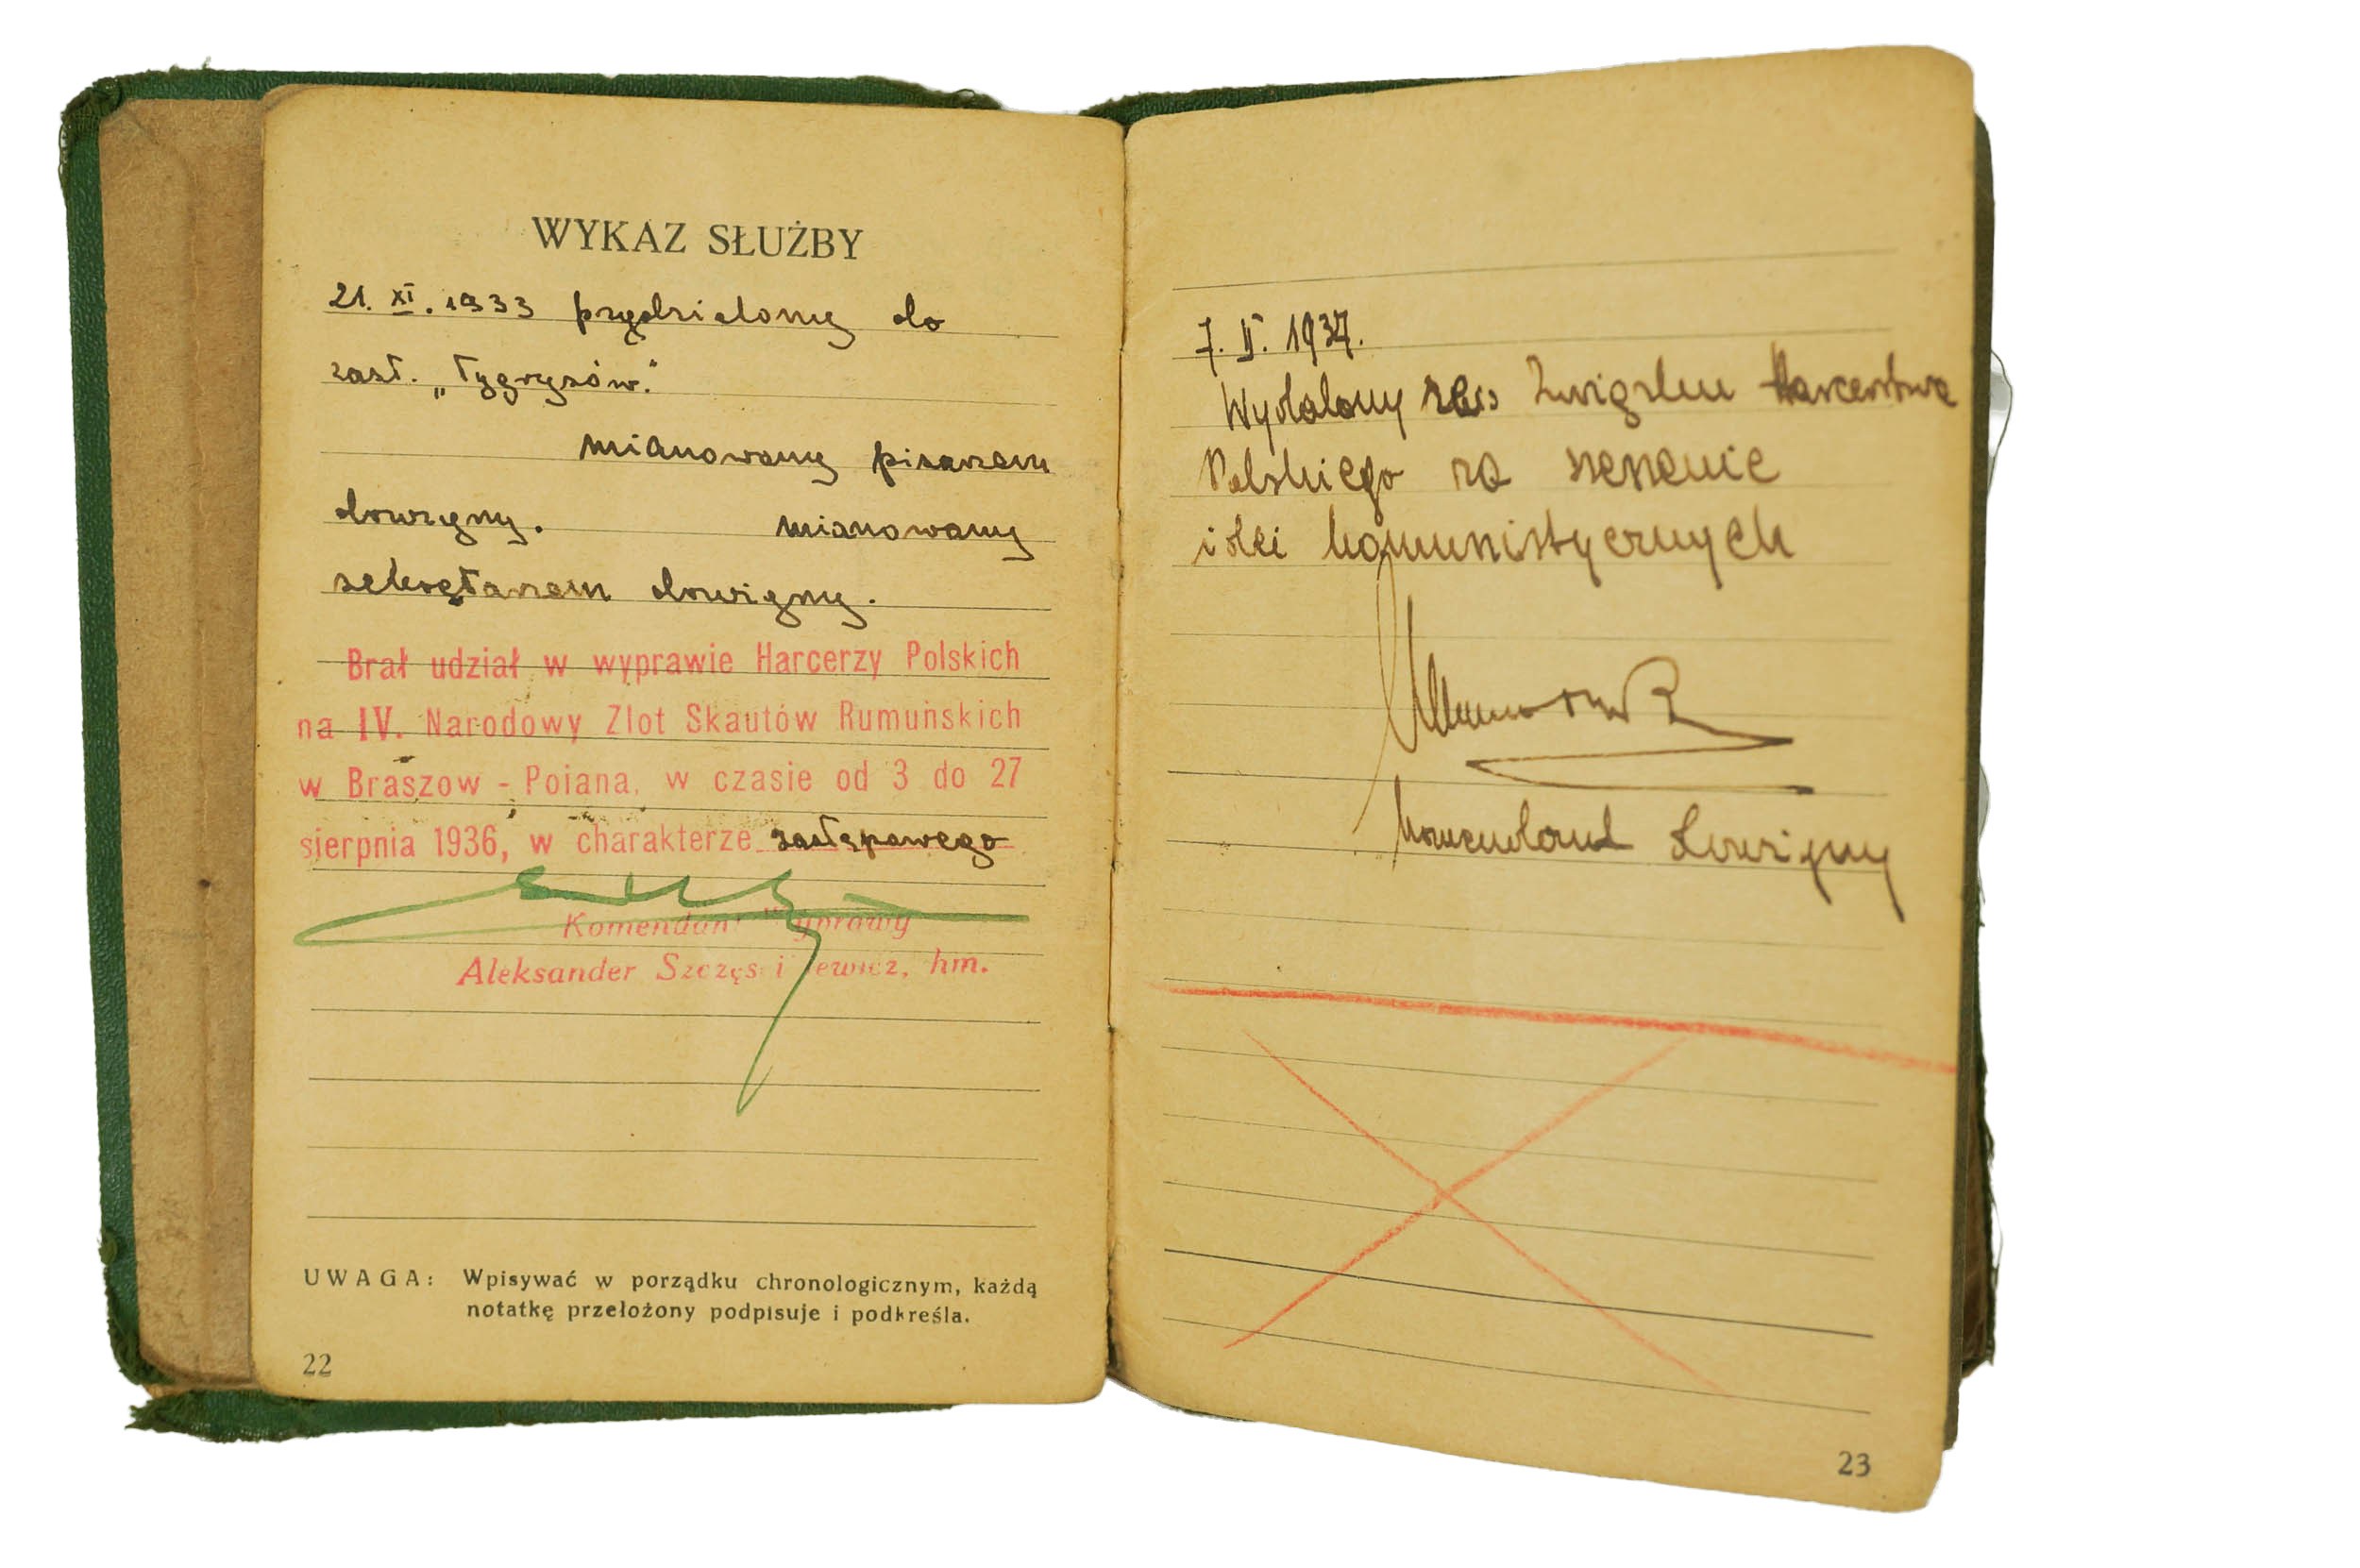 WYKAZ SŁUŻBY
21. XI. 1933 przydzielony do
zast. „Tygrysów."
mianowany pisarzem
drużyny. mianowany
sekretarzem drużyny.
Brał udział w wyprawie Harcerzy Polskich
na IV. Narodowy Zlot Skautów Rumuńskich
w Braszow - Poiana, w czasie od 3 do 27
sierpnia 1936, w charakterze zastępowego
Komendant Wyprawy
Aleksander Szczęścikiewicz, hm.
UWAGA: Wpisywać w porządku chronologicznym, każdą
notatkę przełożony podpisuje i podkreśla.
22
7. II. 1937.
Wydalony ze Związku Harcerstwa
Polskiego za szerzenie
idei komunistycznych
Komendant drużyny
23